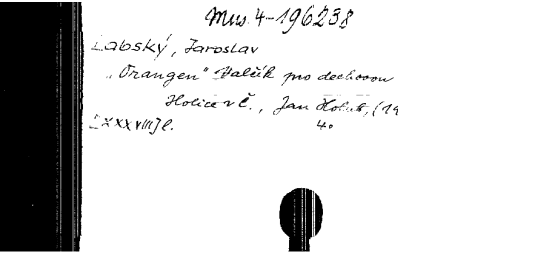 Mus. 4-196238
Labský, Jaroslav
„Orangen" Valčík pro dechovou
Holice v Č., Jan Holub, (19
[XXXVIII] l. 4°